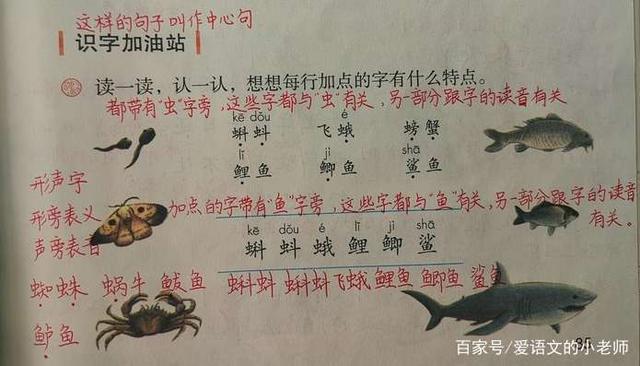 这样的句子叫作中心句
识字加油站
读一读，认一认，想想每行加点的字有什么特点。
都带有"虫"字旁，这些字都与"虫"有关，另一部分跟字的读音有关
kē dǒu é
蝌蚪 飞蛾 螃蟹
lǐ jì shā
鲤鱼 鲫鱼 鲨鱼
形声字
形旁表义
加点的字带有"鱼"字旁，这些字都与"鱼"有关，另一部分跟字的读音
有关。
声旁表音
kē dǒu é lǐ jì shā
蝌 蚪 蛾 鲤 鲫 鲨
蜘蛛 蜗牛 鲅鱼 蝌蚪 蝌蚪飞蛾 鲤鱼 鲫鱼 鲨鱼
鲈鱼
85
百家号/爱语文的小老师